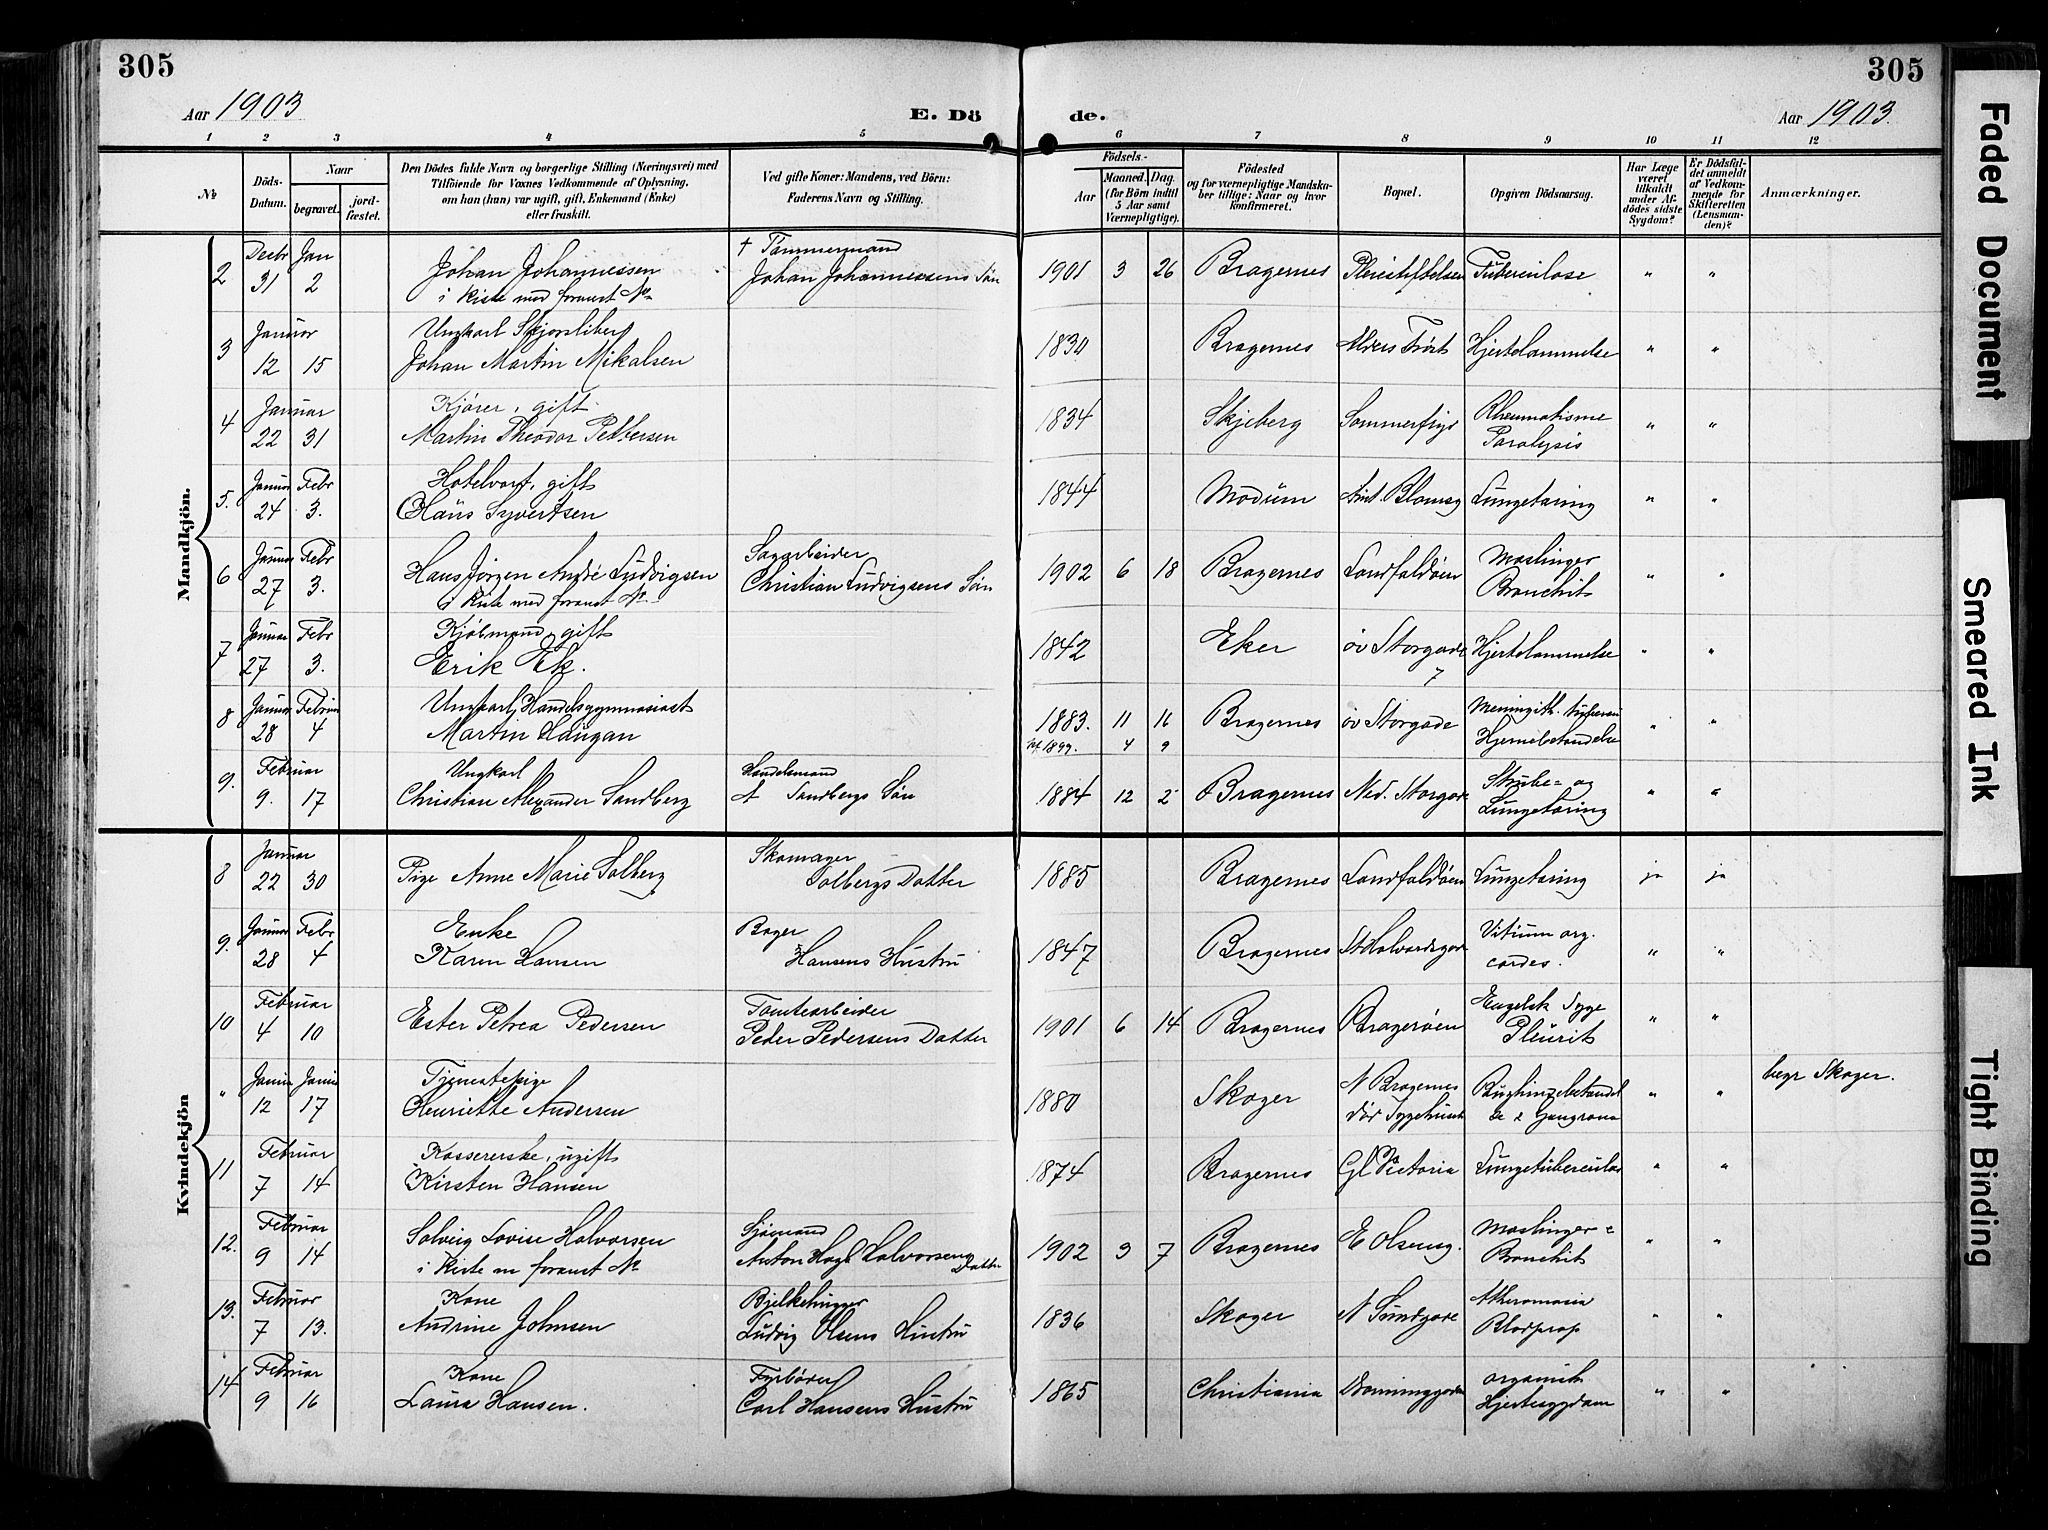 305
305
Aar 1903
E. Dö
de.
Aar 1903.
1 2 3 4 5 6 7 8 9 10 11 12
No
Döds-Datum.
Naar
begravet.
jord-fæstet.
Den Dödes fulde Navn og borgerlige Stilling (Næringsvei) med
Tilföiende for Voxnes Vedkommende af Oplysning,
om han (hun) var ugift, gift, Enkemand (Enke)
eller fraskilt.
Ved gifte Koner: Mandens, ved Börn:
Faderens Navn og Stilling.
Födsels-
Aar
Maaned. Dag.
(for Börn indtil
5 Aar samt
Værnepligtige).
Födested
og for værnepligtige Mandska-
ber tillige: Naar og hvor
konfirmeret.
Bopæl.
Opgiven Dödsaarsag.
Har Læge
været
tilkaldt
under Af-
dödes sidste
Sygdom?
Er Dödsfal-
det anmeldt
af Vedkom-
mende for
Skifteretten
(Lensman-
den)?
Anmærkninger.
Mandkjön.
2 Decbr 31 Jan 2 Johan Johannessen † Tømmermand 1901 3 26 Bragernes Pleiestiftelsen Tuberculose " "
i Kiste med foranst No Johan Johannessens Søn
3 Januar 12 15 Ungkarl 1830 Bragernes Hjertelammelse " "
Johan Martin Mikalsen
4 Januar 22 31 Kjører, gift 1834 Skjeberg Rheumatisme " "
Martin Theodor Pettersen Paralysis
5. Januar 24 Febr 3. Hotelvært, gift 1844 Modum Lungetæring " "
Hans Syvertsen
6 Januar 27 Febr 3. Hans Jörgen André Ludvigsen Sagarbeider 1902 6 18 Bragernes Landfaldøen Mæslinger " "
i Kiste med foranst No Christian Ludvigsens Søn Bronchit
7 Januar 27 Febr 3. Kjøbmand, gift 1842 Eker øv Storgade 7 Hjertelammelse " "
Erik Ek.
8 Januar 28 Februar 4 Ungkarl, Handelsgymnasiast 1883. 11 16 Bragernes øv Storgade Meningith. " "
Martin Haugan 1899. 4 9 Hjernebetændelse
9. Februar 9. 17 Ungkarl Handelsmand 1884 12 2 Bragernes Ned. Storgade Strube- og " "
Christian Alexander Sandberg A Sandbergs Søn Lungetæring
Kvindekjön
8 Januar 22 30 Pige Anne Marie Solberg Skomager 1885 Bragernes Landfaldøen Lungetæring ja ja
Solbergs Datter
9. Januar 28 Febr 4 Enke Bager 1847 Bragernes St Halvardsgade Vitium org. " "
Karen Hansen Hansens Hustru cordis.
10 Februar 4 10 Ester Petrea Pedersen Tomtearbeider 1901 6 14 Bragernes Bragerøen Engelsk Syge " "
Peder Pedersens Datter Pleurit
" Januar 12 Januar 17 Tjenestepige 1880 Skoger N Bragernes " " begr Skoger.
Henriette Andersen død Sygehuset Gangræna
11 Februar 7 14 Kassererske, ugift 1874 Bragernes Gl Victoria Lungetuberculos " "
Kirsten Hansen
12. Februar 9 14 Solveig Lovise Halvorsen Sjømand 1902 3 7 Bragernes E Olsensg. Mæslinger - " "
i Kiste m foranst No Anton Halvorsens Datter Bronchit
13. Februar 7 13. Kone Bjelkehugger 1836 Skoger N Sundgade Atheromasia " "
Andrine Johnsen Ludvig Olsens Hustru Blodprop
14 Februar 9 16 Kone Fyrbøder 1865 Christiania organisk " "
Laura Hansen. Carl Hansens Hustru Hjertesygdom
Faded Document
Smeared Ink
Tight Binding